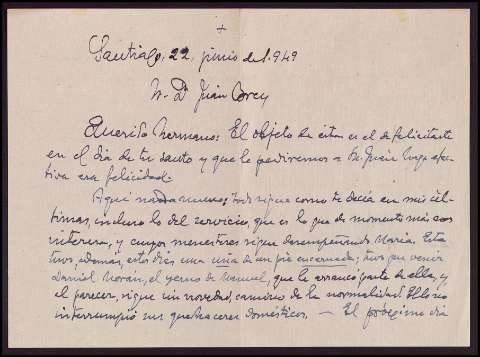 +
Santiago, 22 junio de 1.949
Sr. D. Juan
Querido hermano: El objeto de ésta es el de felicitarte
en el día de tu santo y que le pediremos a haga efec-
tiva esa felicidad.
Aquí nada nuevo; todo sigue como te decía en mis úl-
timas, incluso lo del servicio, que es lo que de momento más nos
interesa, y cuyos menesteres sigue desempeñando María. Esta
tuvo, además, estos días, una uña de un pie encarnada; tuvo que venir
Daniel Morán, el yerno de Manuel, que le arrancó parte de ella, y
al parecer, sigue sin novedad, camino de la normalidad. Ello no
interrumpió sus quehaceres domésticos. — El próximo día